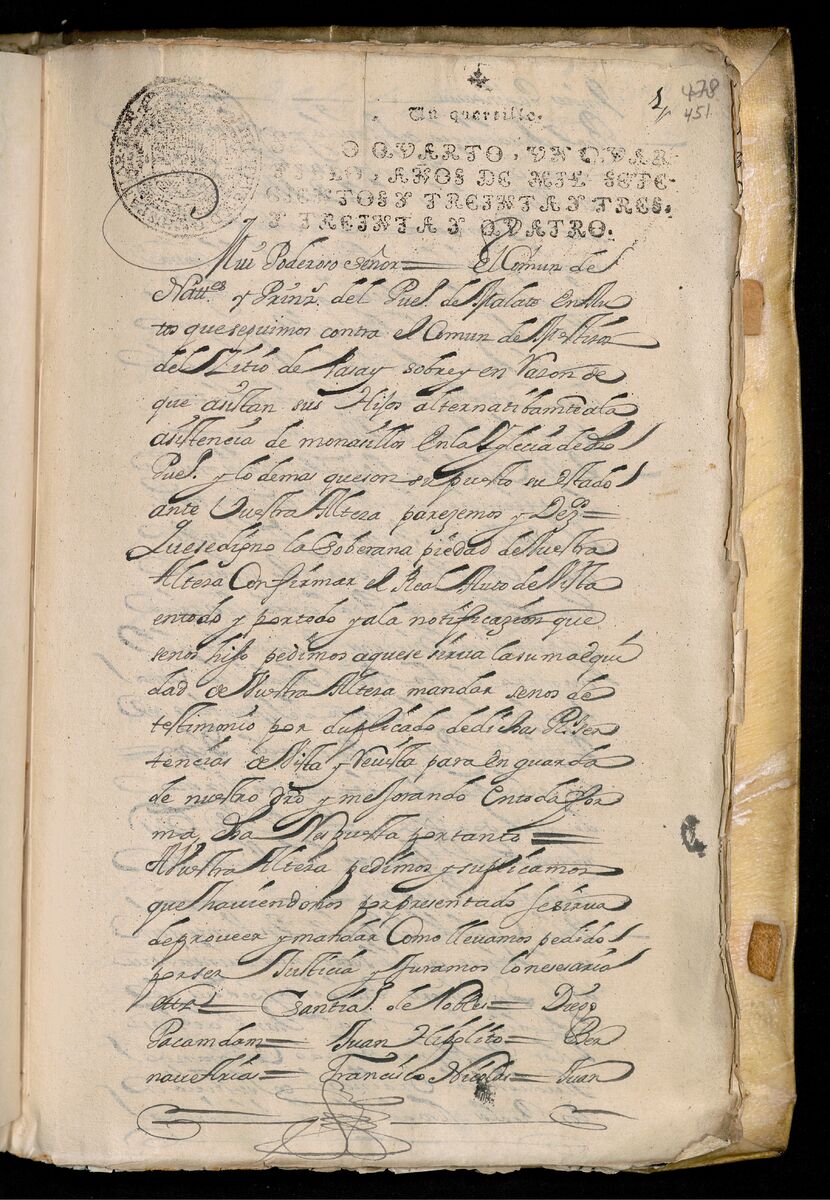 478
451
1
Un quartillo.
O QVARTO, VN QVAR-
TILLO, AÑOS DE MIL SETE-
CIENTOS Y TREINTA Y TRES,
Y TREINTA Y QVATRO.
Mui Poderoso Señor = El Comun de
Natu.es y Prinz. del Pue.º de Malato En Au
tos que seguimos contra el Comun de Mestisos
del Sitio de Pasay sobre y en Razon de
que asistan sus Hijos alternatibam.te a la
asistencia de monasillos En la Iglecia de dho
Pue.º y lo demas que son su puesto su estado
ante Vuestra Altesa parezemos y Dez.s =
Que se digno la Soberana piedad de Vuestra
Altesa Confirmar el Real Auto de Vista
en todo y por todo y a la notificazion que
se nos hiso pedimos a que se sirva la suma equi
dad de Vuestra Altesa mandar se nos de
testimonio por duplicado de dichas R.s Sen
tencias de Vista y Revista para En guarda
de nuestro dro y mejorando En toda for
ma dha Respuesta por tanto =
A Vuestra Altesa pedimos y suplicamos
que haviendonos por presentado se sirva
de proveer y mandar Como llevamos pedido
por ser Justicia y Juramos lo nesesario
etta = Santia.º de Nobles = Diego
Pacamdam = Juan Hipolito = Ber
nave Arias = Francisco Nicolas = Juan